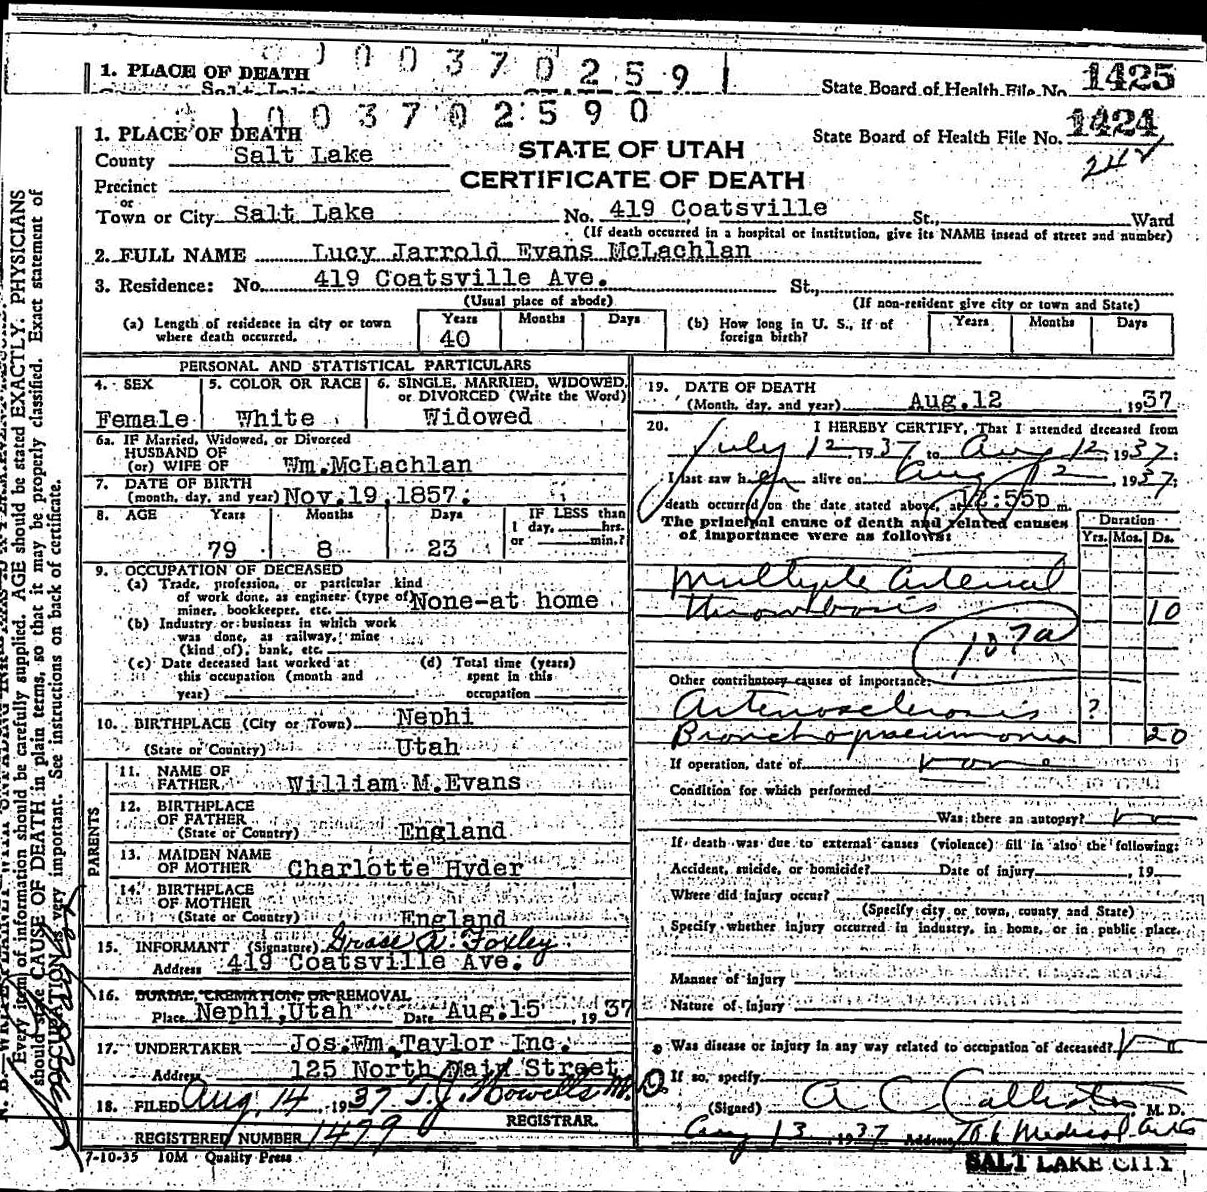 0 0 0 3 7 0 2 5 9 1
1. PLACE OF DEATH
State Board of Health File No. 1425
1 0 0 3 7 0 2 5 9 0
1. PLACE OF DEATH
State Board of Health File No. 1424
County Salt Lake
STATE OF UTAH
242
Precinct
CERTIFICATE OF DEATH
or
Town or City Salt Lake No. 419 Coatsville St., Ward
(If death occurred in a hospital or institution, give its NAME insead of street and number)
2. FULL NAME Lucy Jarrold Evans McLachlan
3. Residence: No. 419 Coatsville Ave. St.,
(Usual place of abode) (If non-resident give city or town and State)
(a) Length of residence in city or town where death occurred. Years 40 Months Days
(b) How long in U. S., if of foreign birth? Years Months Days
PERSONAL AND STATISTICAL PARTICULARS
4. SEX Female
5. COLOR OR RACE White
6. SINGLE, MARRIED, WIDOWED, or DIVORCED (Write the Word) Widowed
6a. IF Married, Widowed, or Divorced
HUSBAND OF
(or) WIFE OF Wm. McLachlan
7. DATE OF BIRTH
(month, day, and year) Nov. 19, 1857.
8. AGE Years 79 Months 8 Days 23
IF LESS than
1 day, hrs.
or min.?
9. OCCUPATION OF DECEASED
(a) Trade, profession, or particular kind
of work done, as engineer (type of)
miner, bookkeeper, etc. None-at home
(b) Industry or business in which work
was done, as railway, mine
(kind of), bank, etc.
(c) Date deceased last worked at
this occupation (month and
year)
(d) Total time (years)
spent in this
occupation
10. BIRTHPLACE (City or Town) Nephi
(State or Country) Utah
PARENTS
11. NAME OF
FATHER William M. Evans
12. BIRTHPLACE
OF FATHER
(State or Country) England
13. MAIDEN NAME
OF MOTHER Charlotte Hyder
14. BIRTHPLACE
OF MOTHER
(State or Country) England
15. INFORMANT (Signature) Grace A. Foxley
Address 419 Coatsville Ave.
16. BURIAL, CREMATION, OR REMOVAL
Place Nephi, Utah Date Aug. 15, 1937
17. UNDERTAKER Jos. Wm. Taylor Inc.
Address 125 North Main Street
18. FILED Aug. 14, 1937 T. J. Howells M.D.
REGISTRAR.
REGISTERED NUMBER 1479
7-10-35 10M Quality Press
19. DATE OF DEATH
(Month, day, and year) Aug. 12, 1937
20. I HEREBY CERTIFY, That I attended deceased from
July 12 1937 to Aug 12 1937:
I last saw her alive on Aug 12, 1937;
death occurred on the date stated above, at 12:55p m.
The principal cause of death and related causes
of importance were as follows:
Duration
Yrs. Mos. Ds.
Multiple arterial
thrombosis 10
107a
Other contributory causes of importance:
Arteriosclerosis ?
Bronchopneumonia 20
If operation, date of none
Condition for which performed
Was there an autopsy? no
If death was due to external causes (violence) fill in also the following:
Accident, suicide, or homicide? Date of injury , 19
Where did injury occur?
(Specify city or town, county and State)
Specify whether injury occurred in industry, in home, or in public place.
Manner of injury
Nature of injury
Was disease or injury in any way related to occupation of deceased? no
If so, specify
(Signed) A C Callister, M. D.
Aug 13 1937 Address Medical Arts
SALT LAKE CITY
Every item of information should be carefully supplied. AGE should be stated EXACTLY. PHYSICIANS
should state CAUSE OF DEATH in plain terms, so that it may be properly classified. Exact statement of
OCCUPATION is very important. See instructions on back of certificate.